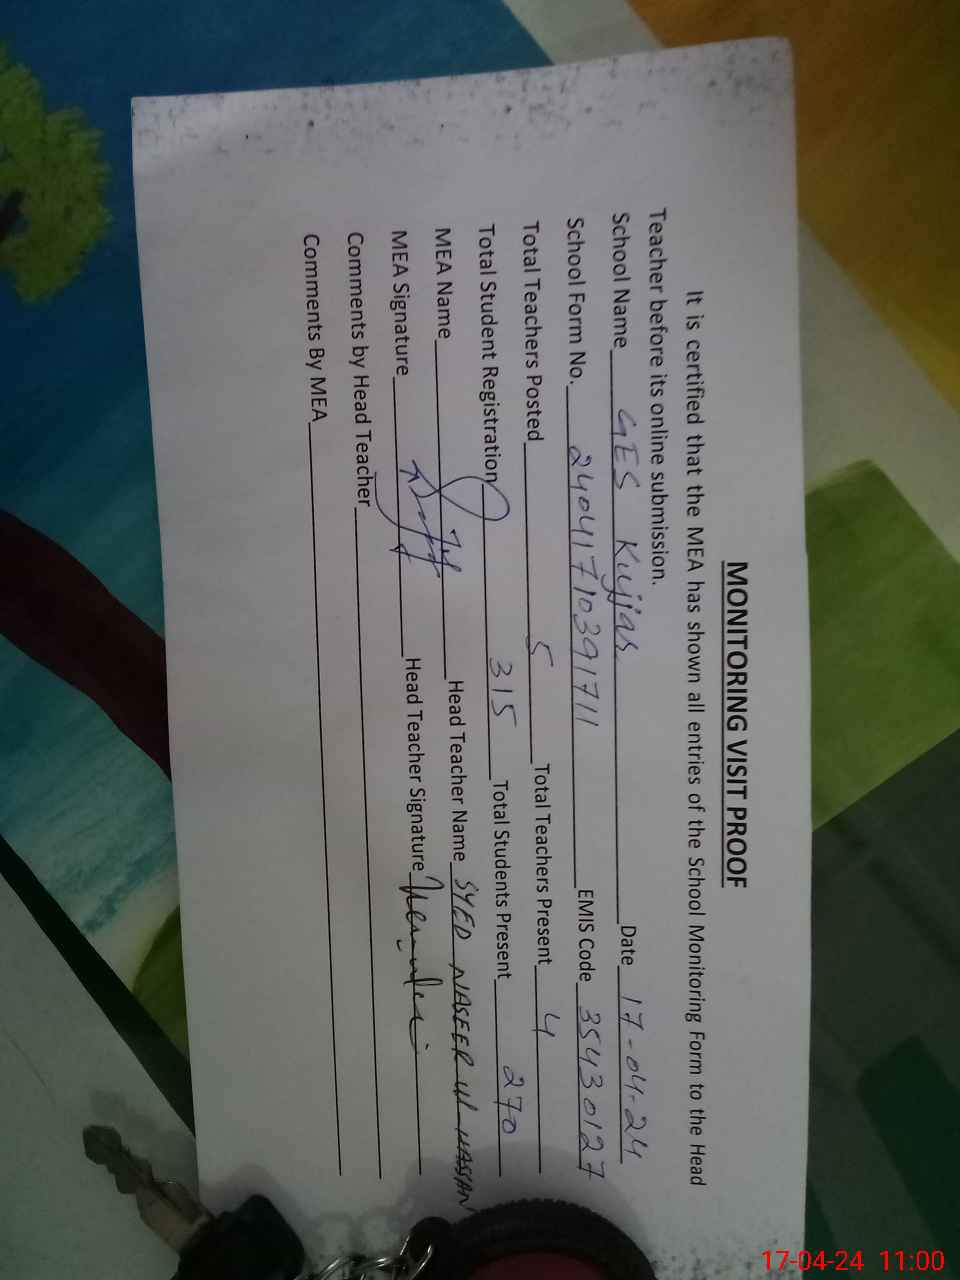 MONITORING VISIT PROOF
It is certified that the MEA has shown all entries of the School Monitoring Form to the Head
Teacher before its online submission.
School Name GES Kujjar Date 17-04-24
School Form No. 24041710391711 EMIS Code 35430127
Total Teachers Posted 5 Total Teachers Present 4
Total Student Registration 315 Total Students Present 270
MEA Name Head Teacher Name SYED NASEER Ul HASSAN
MEA Signature Head Teacher Signature
Comments by Head Teacher
Comments By MEA
17-04-24 11:00